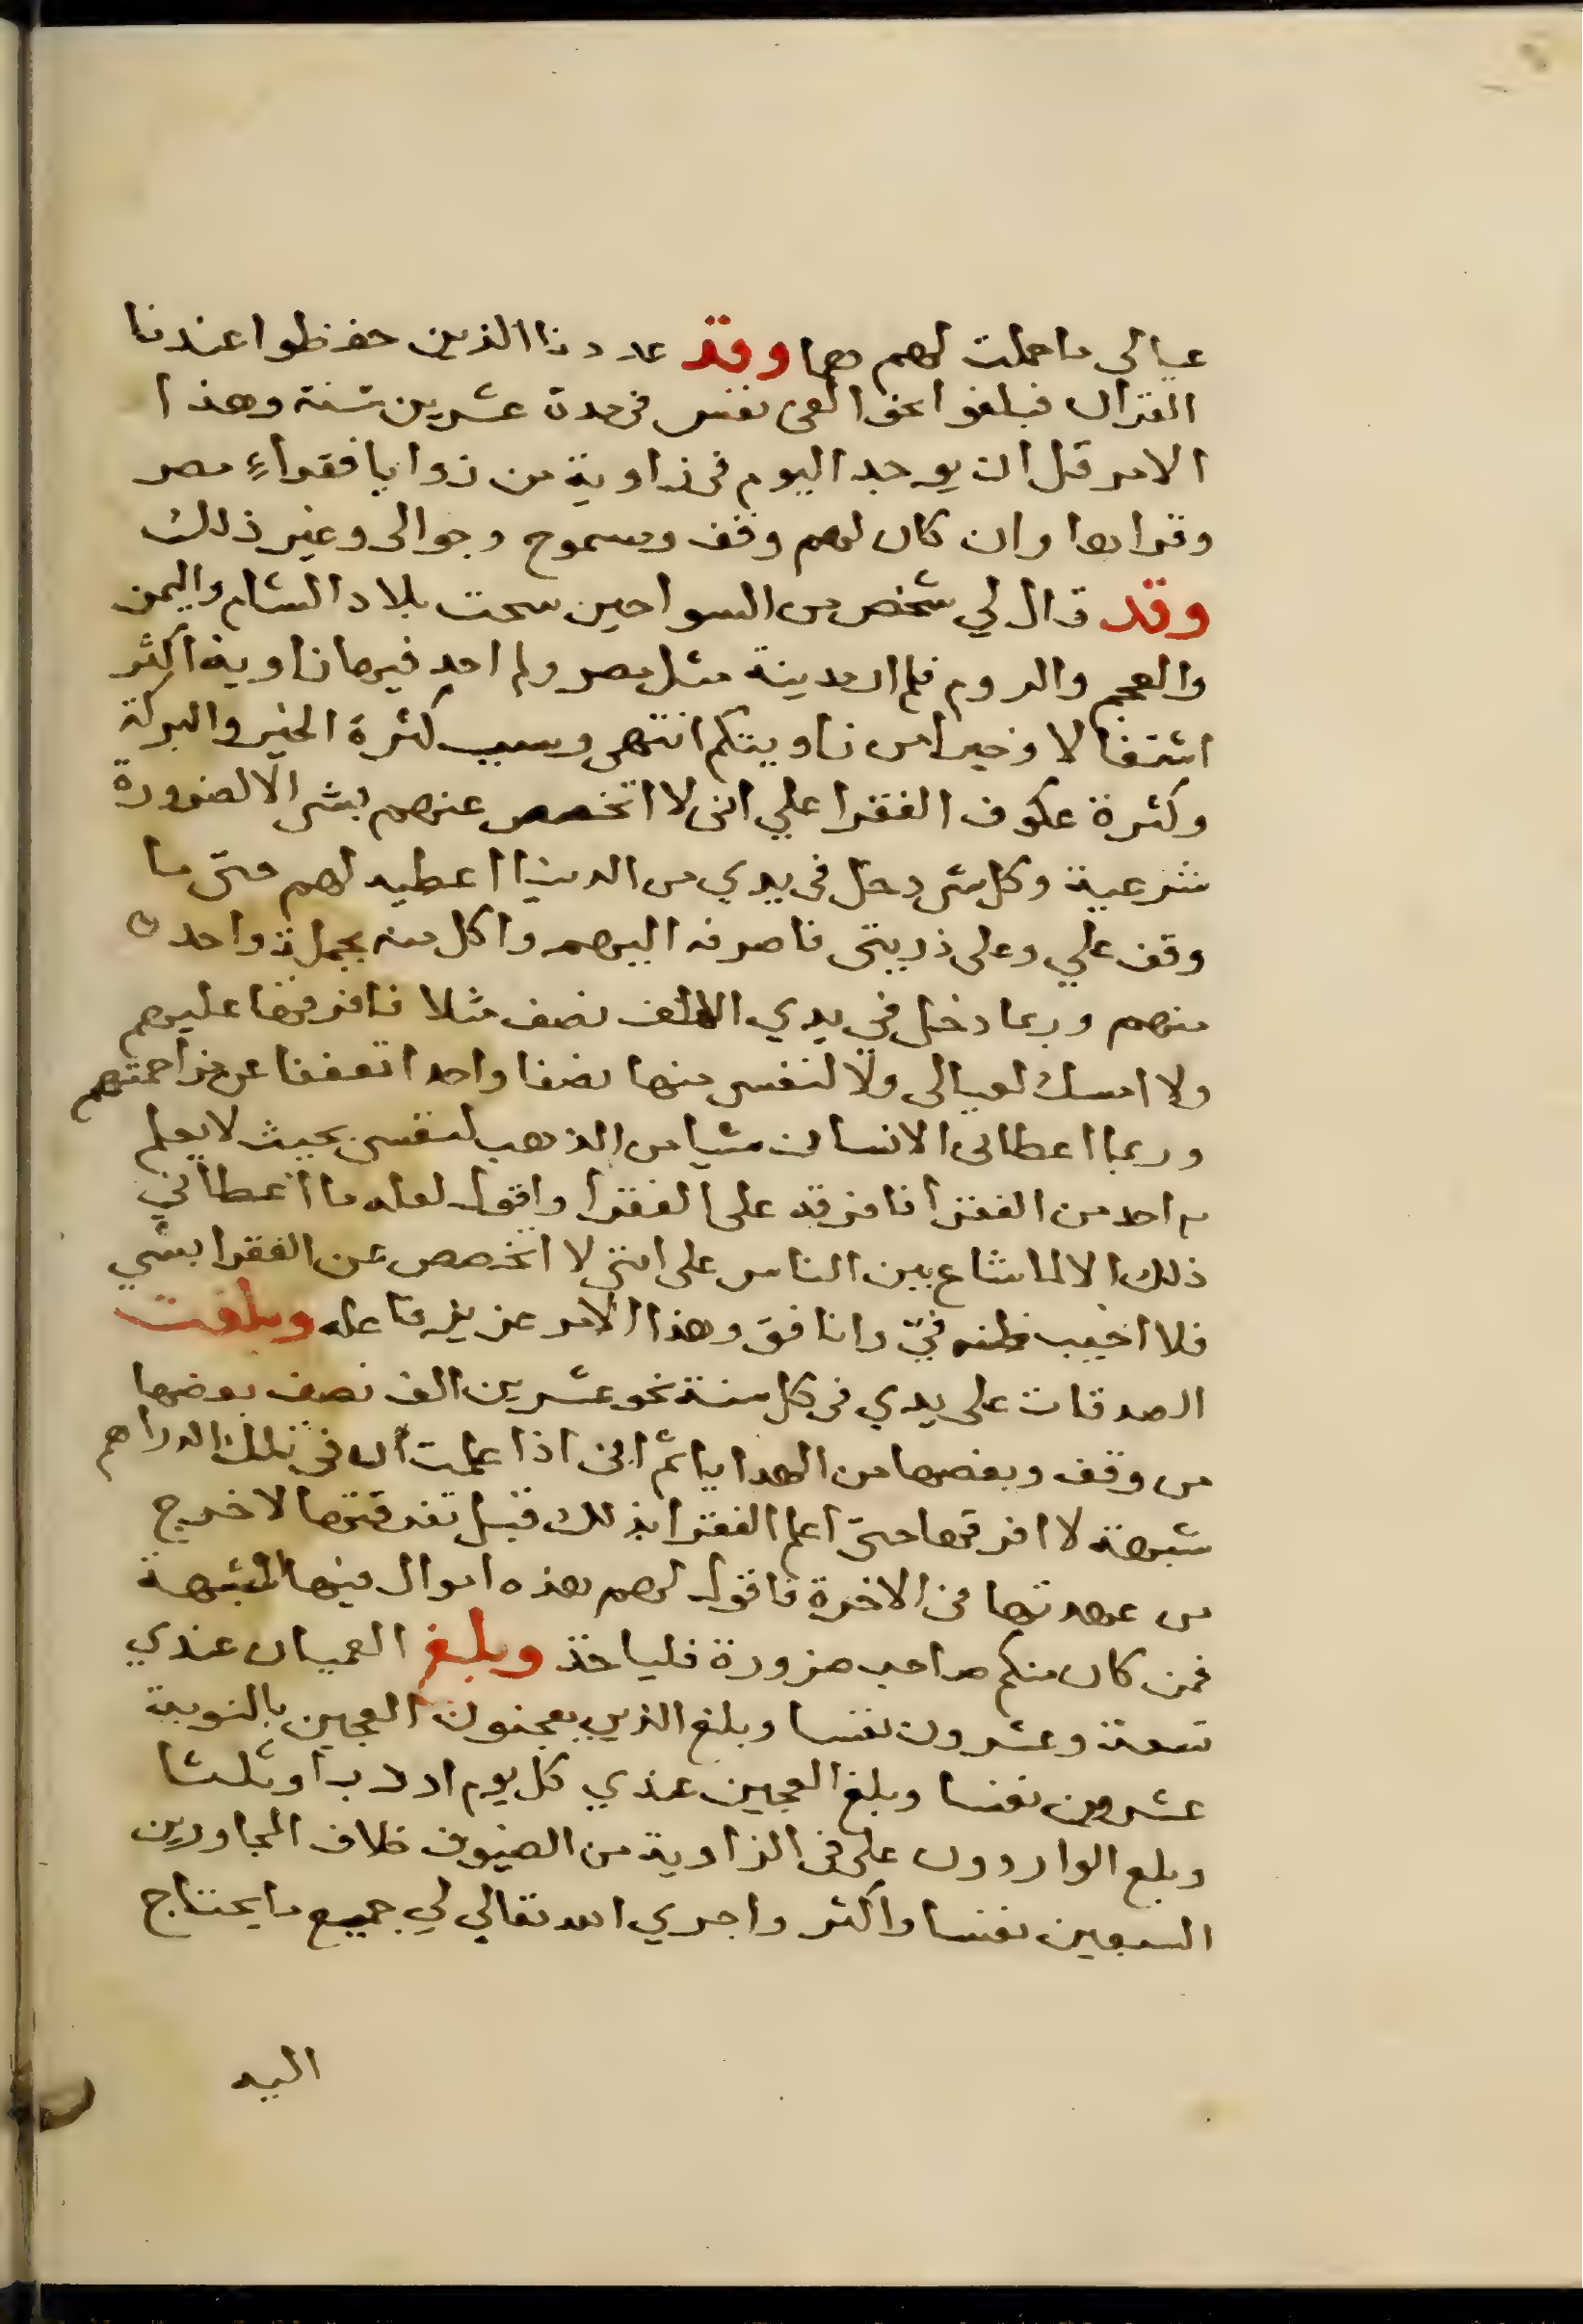 عيالى ما حملت لهم هما وقد عددنا الذين حفظوا عندنا
القران فبلغوا نحو الفى نفس فى مدة عشرين سنة وهذا
الامر قل ان يوجد اليوم فى زاوية من زوايا فقراء مصر
وقراها وان كان لهم وقف ومسموح وجوالى وغير ذلك
وقد قال لي شخص من السواحين سحت بلاد الشام واليمن
والعجم والروم فلم ار مدينة مثل مصر ولم اجد فيها زاوية اكثر
اشتغالا وخيرا من زاويتكم انتهى وسبب كثرة الخير والبركة
وكثرة عكوف الفقرا علي انى لا اتخصص عنهم بشى الا لضرورة
شرعية وكل شى دخل فى يدي من الدنيا اعطيه لهم حتى ما
وقف علي وعلى ذريتى فاصرفه اليهم واكل منه بجملة واحد
منهم وربما دخل في يدي الالف نصف مثلا فافرقها عليهم
ولا امسك لعيالى ولا لنفسى منها نصفا واحدا تعففا عن مزاحمتهم
وربما اعطانى الانسان شيا من الذهب لنفسى بحيث لا يعلم
به احد من الفقرا فافرقه على الفقرا واقول لعله ما اعطاني
ذلك الا لما شاع بين الناس على اننى لا اتخصص عن الفقرا بشي
فلا اخيب ظنه فيّ وانافق وهذا الامر عزيز فاعله وبلغت
الصدقات على يدي فى كل سنة نحو عشرين الف نصف بعضها
من وقف وبعضها من الهدايا ثم انى اذا علمت ان فى تلك الدراهم
شبهة لا افرقها حتى اعلم الفقرا بذلك قبل تفرقتها لاخرج
من عهدتها فى الاخرة فاقول لهم هذه اموال فيها الشبهة
فمن كان منكم صاحب ضرورة فلياخذ وبلغ العميان عندي
تسعة وعشرون نفسا وبلغ الذين يعجنون العجين بالنوبة
عشرون نفسا وبلغ العجين عندي كل يوم اردبا وثلثا
وبلغ الواردون على فى الزاوية من الضيوف خلاف المجاورين
السبعين نفسا واكثر واجري الله تعالي لي جميع ما يحتاج
اليه